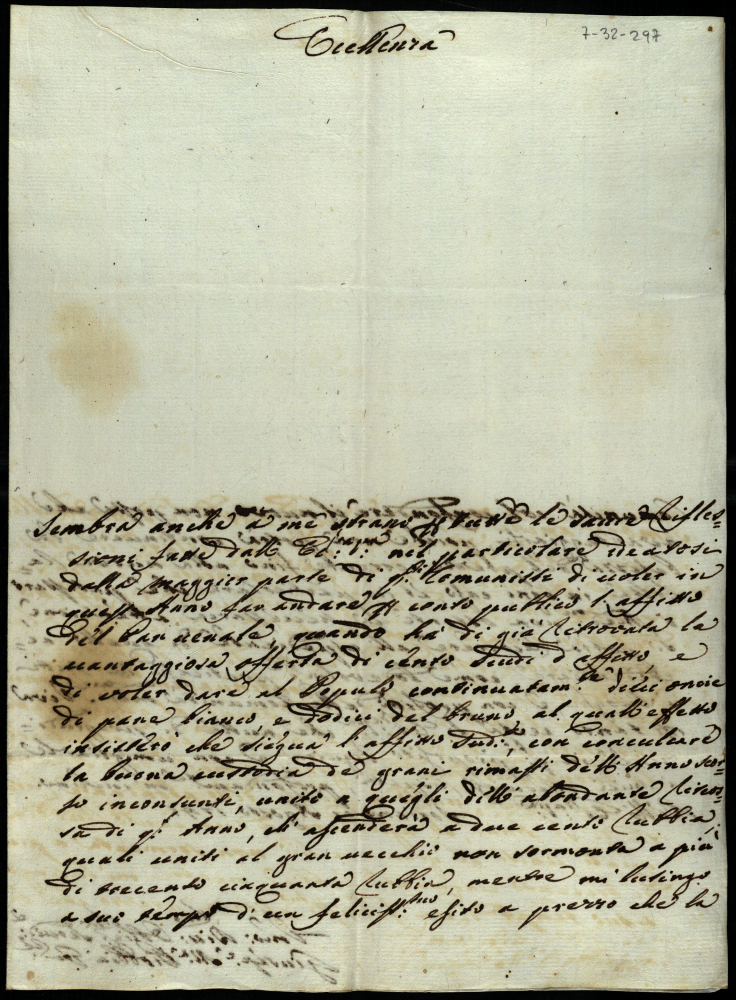 Eccellenza
7-32-297
Sembra anche a me strano per tutte le savie Rifles=
sioni fatte dall' nel particolare ideatosi
dalla maggior parte di Comunisti di voler in
quest' Anno far andare conto publico l'affitto
del Pan venale, quando ha di già ritrovata la
vantaggiosa offerta di cento Scudi d'affitto, e
di voler dare al Popolo continuatam.te dieci oncie
di pane bianco, e dodici del bruno, al quall' effetto
insisterò che siegua l'affitto sud.to, con inculcare
la buona custodia de grani rimasti dell' Anno scor=
so inconsunti, unito a quegli dell' abondante
sa di q.to Anno, ch' ascenderà a due cento Rubbia,
quali uniti al gran vecchio non sormonta a più
di trecento cinquanta Rubbia, mentre mi lusingo
a suo tempo di un feliciss.mo esito a prezzo che la